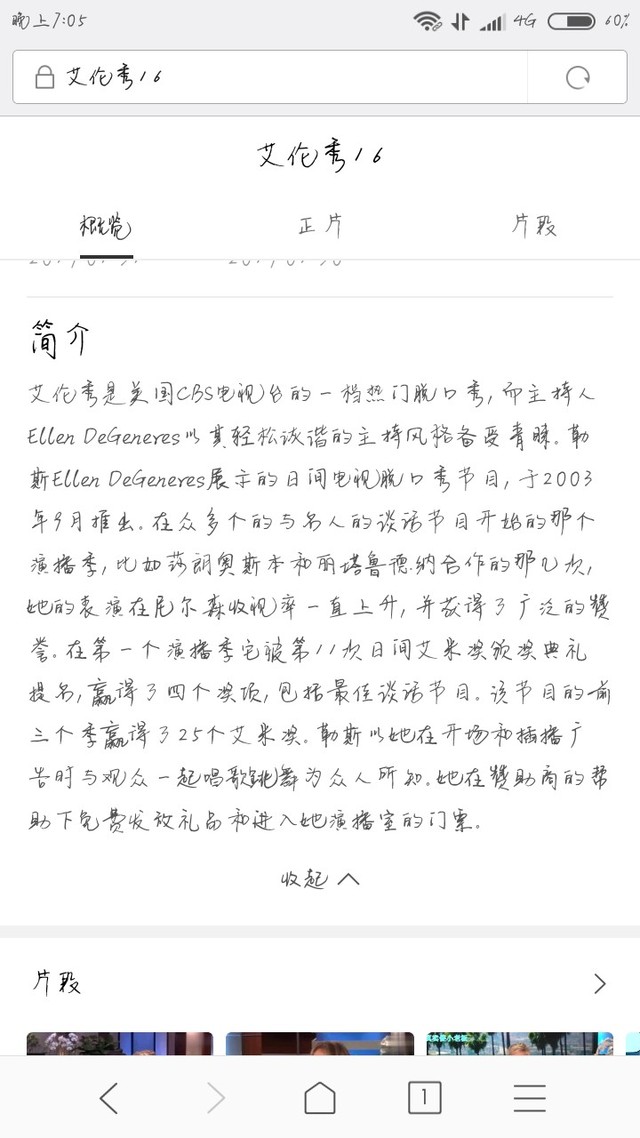 晚上7:05
4G
60%
艾伦秀16
艾伦秀16
概览 正片 片段
简介
艾伦秀是美国CBS电视台的一档热门脱口秀,而主持人
Ellen DeGeneres以其轻松诙谐的主持风格备受青睐。勒
斯Ellen DeGeneres展示的日间电视脱口秀节目,于2003
年9月推出。在众多个的与名人的谈话节目开始的那个
演播季,比如莎朗奥斯本和丽塔鲁德纳合作的那几次,
她的表演在尼尔森收视率一直上升,并获得了广泛的赞
誉。在第一个演播季它被第11次日间艾米奖颁奖典礼
提名,赢得了四个奖项,包括最佳谈话节目。该节目的前
三个季赢得了25个艾米奖。勒斯以她在开场和插播广
告时与观众一起唱歌跳舞为众人所知。她在赞助商的帮
助下免费发放礼品和进入她演播室的门票。
收起
片段
1